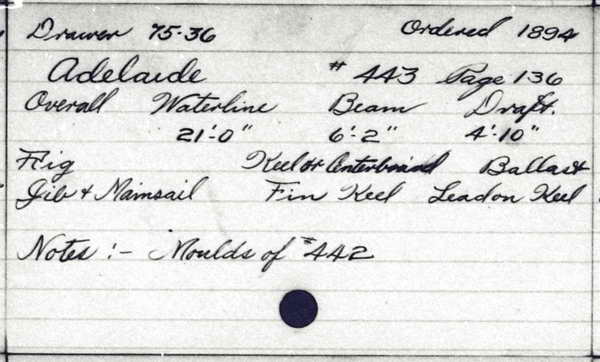 Drawer 75-36 Ordered 1894
Adelaide # 443 Page 136
Overall Waterline Beam Draft.
21'-0" 6'-2" 4'-10"
Rig Keel or Centerboard Ballast
Jib + Mainsail Fin Keel Lead on Keel
Notes :- Moulds of #442